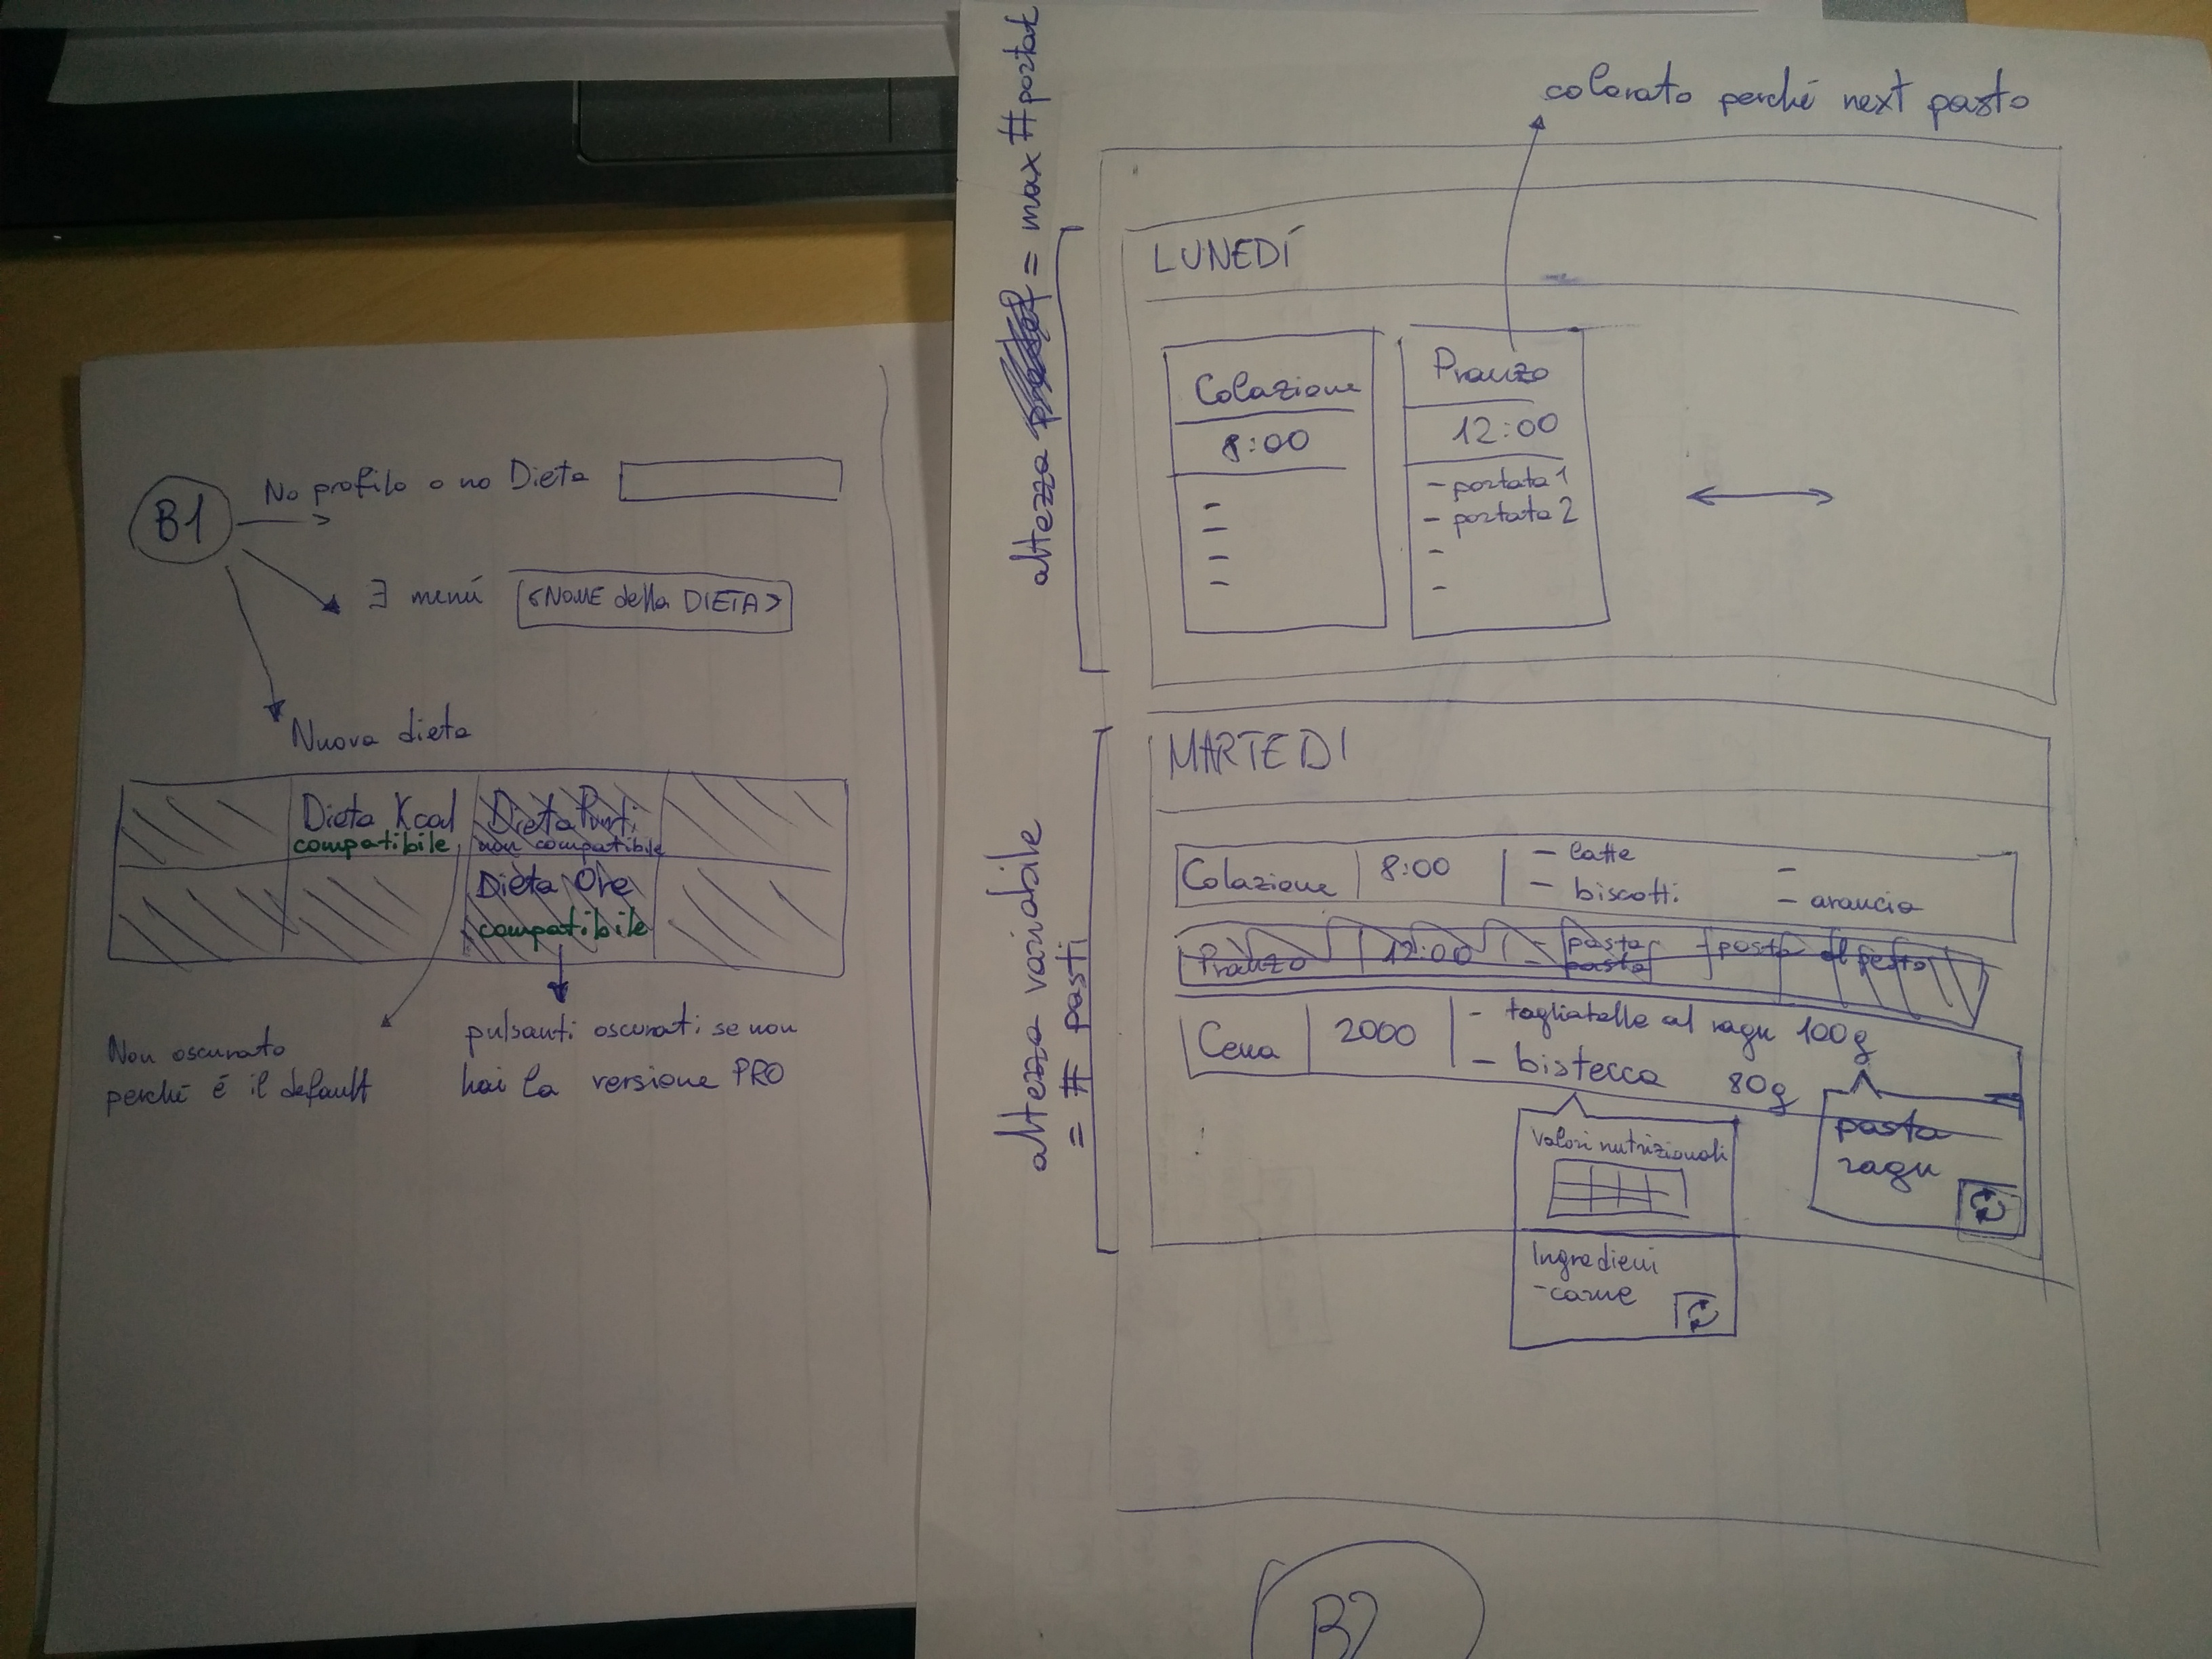 B1
No profilo o no Dieta
∃ menú
<NOME della DIETA>
Nuova dieta
Dieta Kcal
compatibile
Dieta Punti
non compatibile
Dieta Ore
compatibile
Non oscurato
perché é il default
pulsanti oscurati se non
hai la versione PRO
colorato perché next pasto
altezza = max #portat
LUNEDÍ
Colazione
8:00
-
-
-
-
Pranzo
12:00
- portata 1
- portata 2
-
-
altezza variabile
= # pasti
MARTEDI
Colazione
8:00
- latte
- biscotti
-
- arancia
Pranzo
12:00
- pasta
pasta
- pasta al pesto
Cena
2000
- tagliatelle al ragu 100g
- bistecca 80g
Valori nutrizionali
Ingredieni
- carne
pasta
ragu
B2